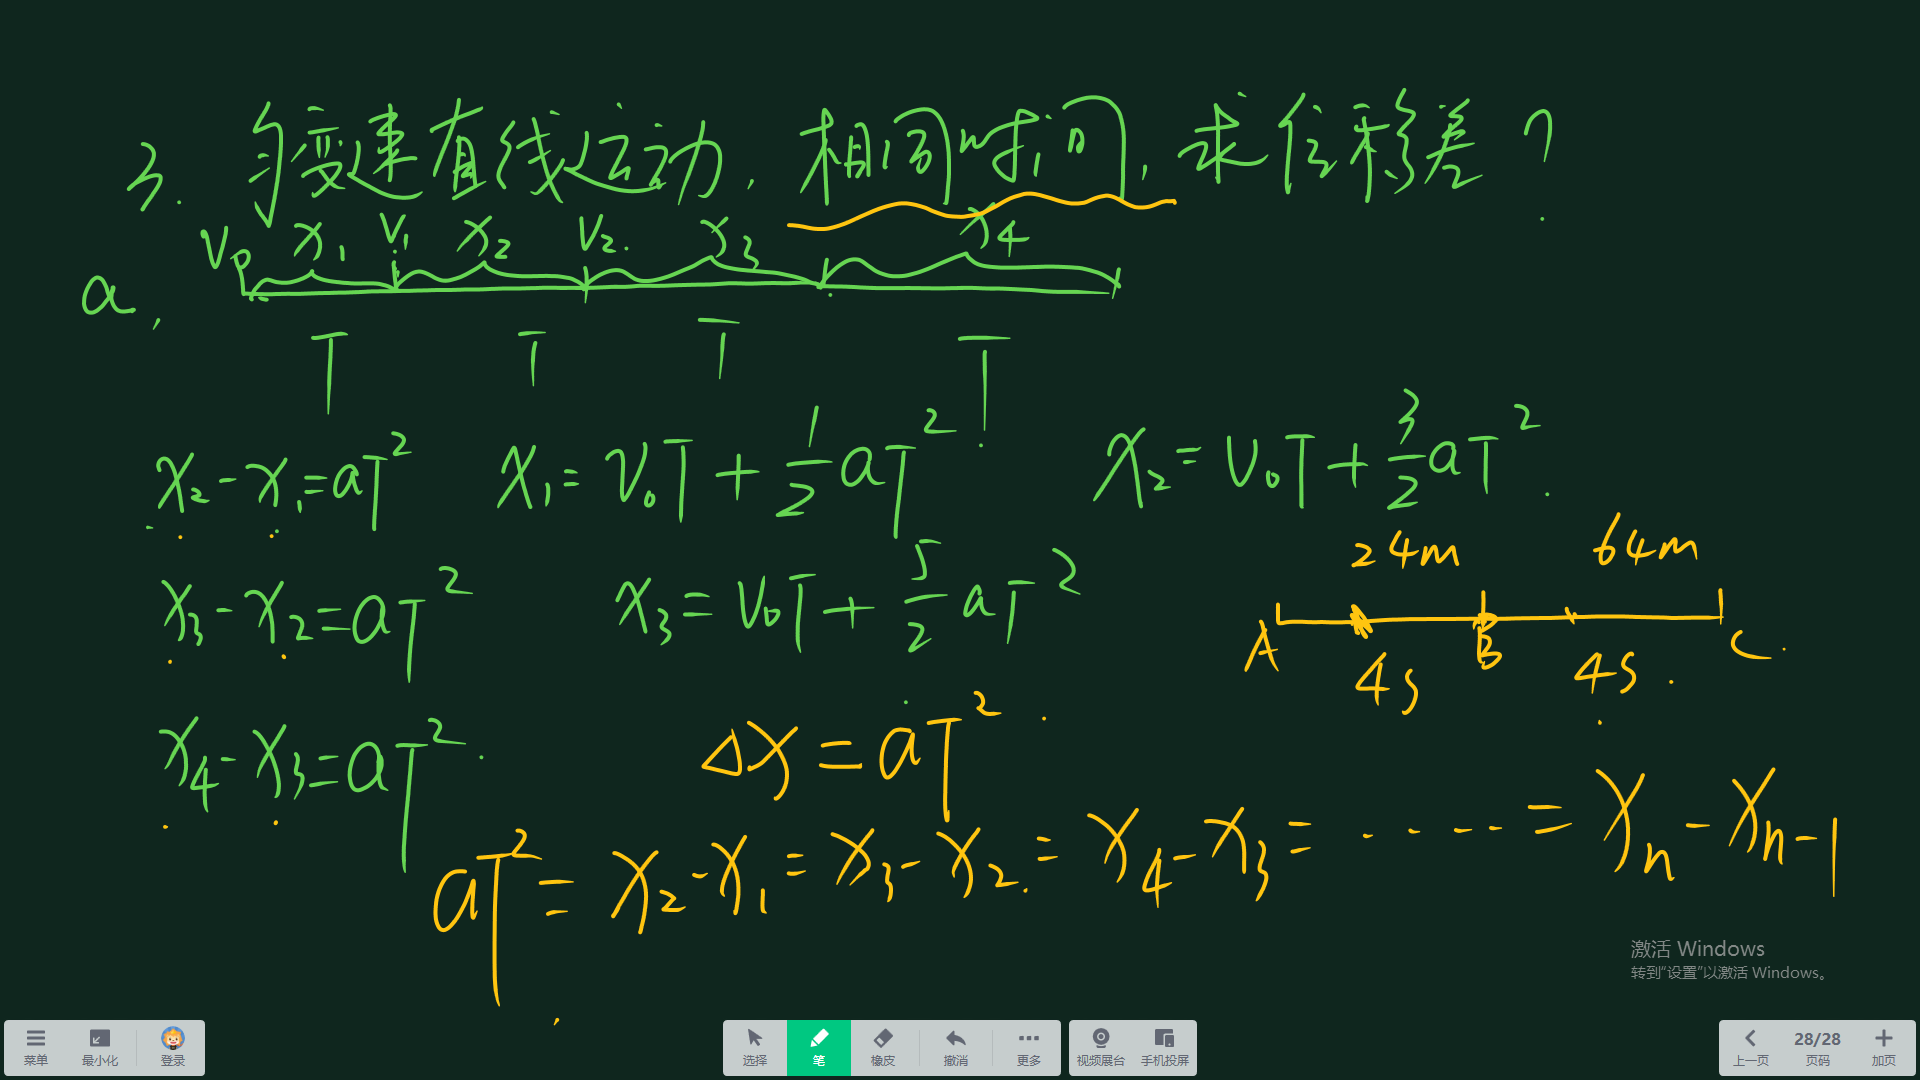 3. 匀变速直线运动, 相同时间, 求位移差?
a, V₀ x₁ V₁ x₂ V₂ x₃ x₄
T T T T
x₂-x₁=aT² x₁=V₀T+½aT² x₂=V₀T+3/2aT²
24m 64m
x₃-x₂=aT² x₃=V₀T+5/2aT²
A B C
4s 4s
x₄-x₃=aT² Δx=aT²
aT²=x₂-x₁=x₃-x₂=x₄-x₃=······=xₙ-xₙ₋₁
激活 Windows
转到“设置”以激活 Windows。
菜单 最小化 登录 选择 笔 橡皮 撤消 更多 视频展台 手机投屏 上一页 28/28 页码 加页